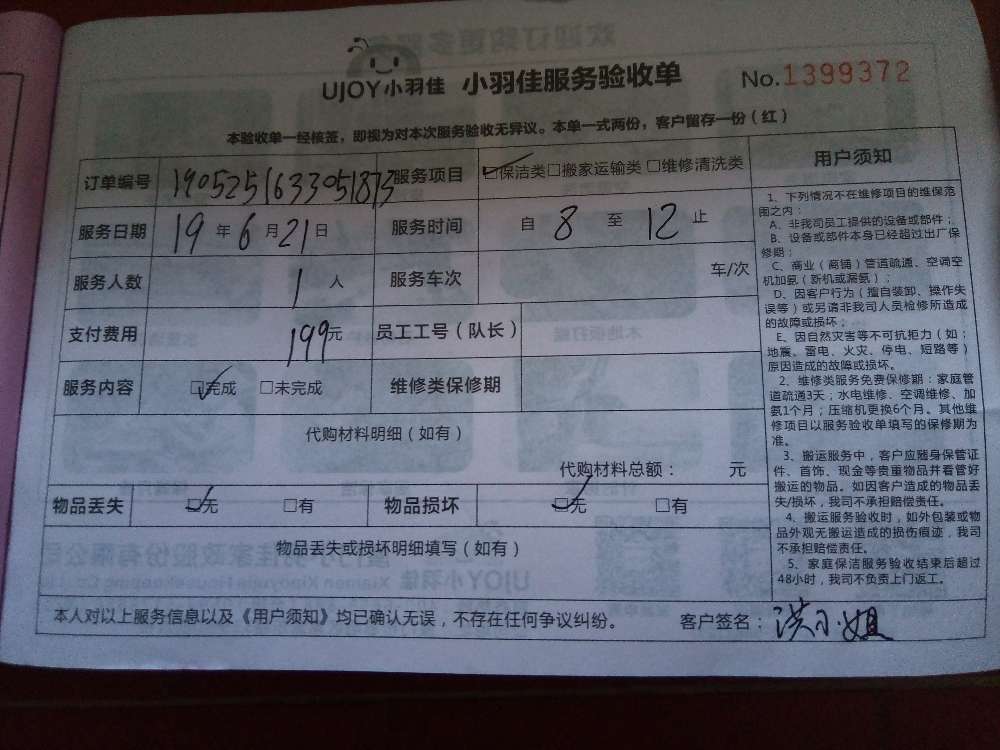 UJOY小羽佳 小羽佳服务验收单 No.1399372
本验收单一经核签，即视为对本次服务验收无异议。本单一式两份，客户留存一份（红）
订单编号 1905251633051873 服务项目 ☑保洁类□搬家运输类□维修清洗类
服务日期 19年6月21日 服务时间 自 8 至 12 止
服务人数 1 人 服务车次 车/次
支付费用 199元 员工工号（队长）
服务内容 ☑完成 □未完成 维修类保修期
代购材料明细（如有）
代购材料总额： 元
物品丢失 ☑无 □有 物品损坏 ☑无 □有
物品丢失或损坏明细填写（如有）
本人对以上服务信息以及《用户须知》均已确认无误，不存在任何争议纠纷。 客户签名：洪小姐
用户须知
1、下列情况不在维修项目的维保范
围之内：
A、非我司员工提供的设备或部件；
B、设备或部件本身已经超过出厂保
修期；
C、商业（商铺）管道疏通、空调空
机加氨（新机或漏氨）；
D、因客户行为（擅自装卸、操作失
误等）或另请非我司人员检修所造成
的故障或损坏；
E、因自然灾害等不可抗拒力（如：
地震、雷电、火灾、停电、短路等）
原因造成的故障或损坏。
2、维修类服务免费保修期：家庭管
道疏通3天；水电维修、空调维修、加
氨1个月；压缩机更换6个月。其他维
修项目以服务验收单填写的保修期为
准。
3、搬运服务中，客户应随身保管证
件、首饰、现金等贵重物品并看管好
搬运的物品。如因客户造成的物品丢
失/损坏，我司不承担赔偿责任。
4、搬运服务验收时，如外包装或物
品外观无搬运造成的损伤痕迹，我司
不承担赔偿责任。
5、家庭保洁服务验收结束后超过
48小时，我司不负责上门返工。